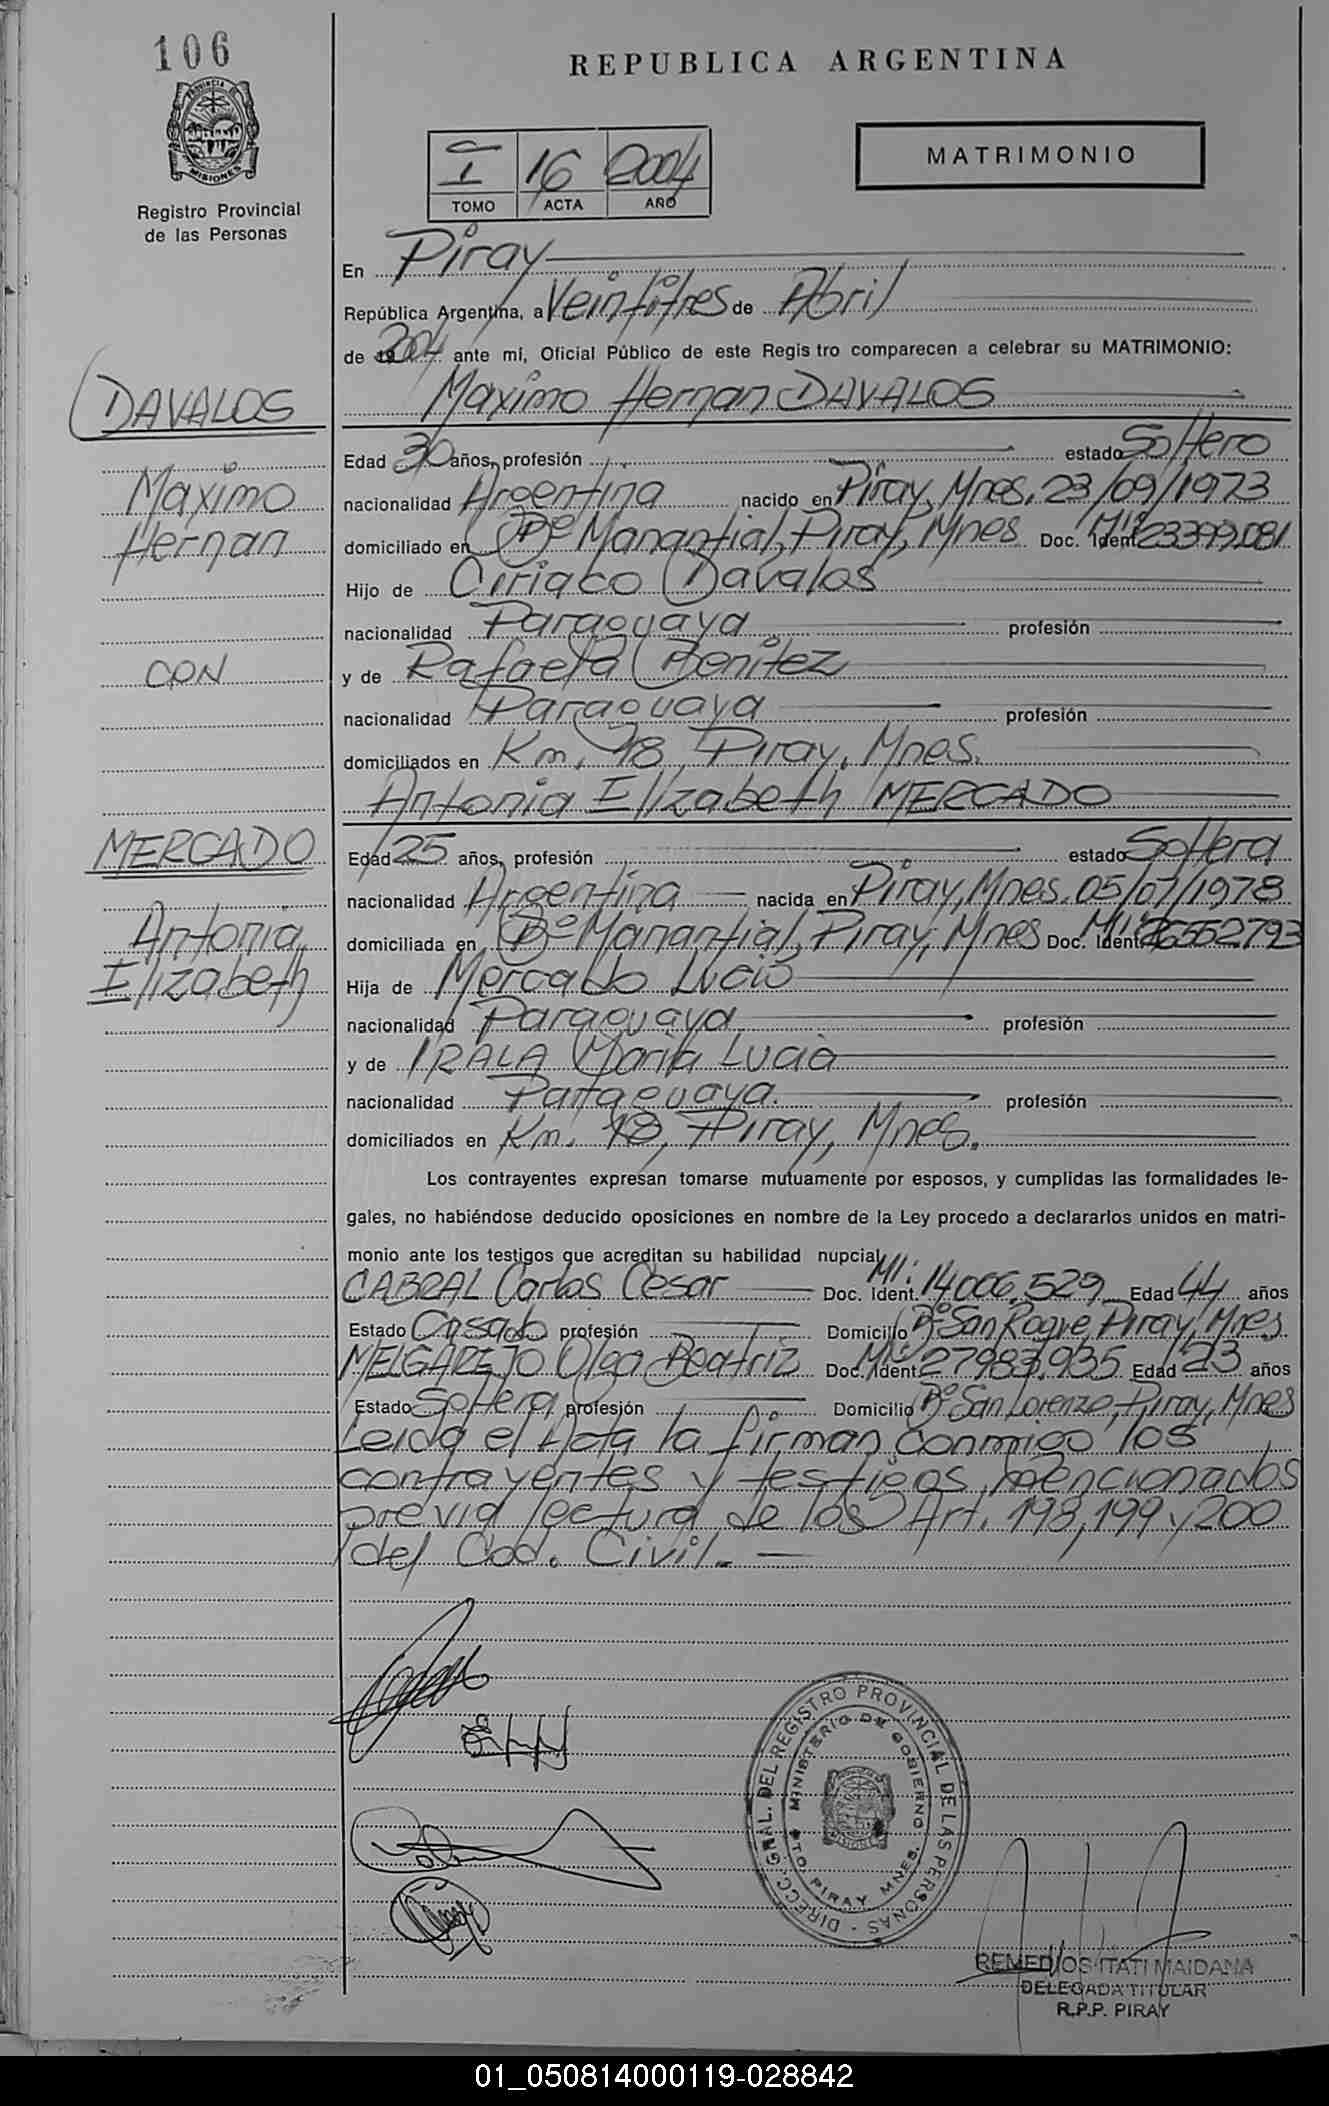 106
REPUBLICA ARGENTINA
PROVINCIA DE
MISIONES
Registro Provincial
de las Personas
I 16 2004
TOMO ACTA AÑO
MATRIMONIO
En Piray
República Argentina, a Veintitres de Abril
de 2004 ante mi, Oficial Público de este Regis tro comparecen a celebrar su MATRIMONIO:
DAVALOS
Maximo Hernan DAVALOS
Edad 30 años, profesión estado Soltero
Maximo
nacionalidad Argentina nacido en Piray, Mnes. 23/09/1973
Hernan
domiciliado en Bº Manantial, Piray, Mnes Doc. Ident. MI: 23399.081
Hijo de Ciriaco Davalos
nacionalidad Paraguaya profesión
CON
y de Rafaela Benitez
nacionalidad Paraguaya profesión
domiciliados en Km. 18, Piray, Mnes.
Antonia Elizabeth MERCADO
MERCADO
Edad 25 años, profesión estado Soltera
nacionalidad Argentina nacida en Piray, Mnes. 05/07/1978
Antonia
domiciliada en Bº Manantial, Piray, Mnes Doc. Ident. MI: 26552793
Elizabeth
Hija de Mercado Lucio
nacionalidad Paraguaya profesión
y de IRALA Maria Lucia
nacionalidad Paraguaya. profesión
domiciliados en Km. 18, Piray, Mnes.
Los contrayentes expresan tomarse mutuamente por esposos, y cumplidas las formalidades le-
gales, no habiéndose deducido oposiciones en nombre de la Ley procedo a declararlos unidos en matri-
monio ante los testigos que acreditan su habilidad nupcial
CABRAL Carlos Cesar Doc. Ident. MI: 14006.529 Edad 44 años
Estado Casado profesión Domicilio Bº San Roque, Piray, Mnes.
MELGAREJO Olga Beatriz Doc. Ident. MI: 27983.935 Edad 23 años
Estado Soltera profesión Domicilio Bº San Lorenzo, Piray, Mnes
Leida el Acta la firman conmigo los
contrayentes y testigos mencionados
previa lectura de los Art. 198, 199 y 200
del Cod. Civil.-
DIRECC. GRAL. DEL REGISTRO PROVINCIAL DE LAS PERSONAS
MINISTERIO DE GOBIERNO
PTO. PIRAY MNES.
REMEDIOS ITATI MAIDANA
DELEGADA TITULAR
R.P.P. PIRAY
01_050814000119-028842